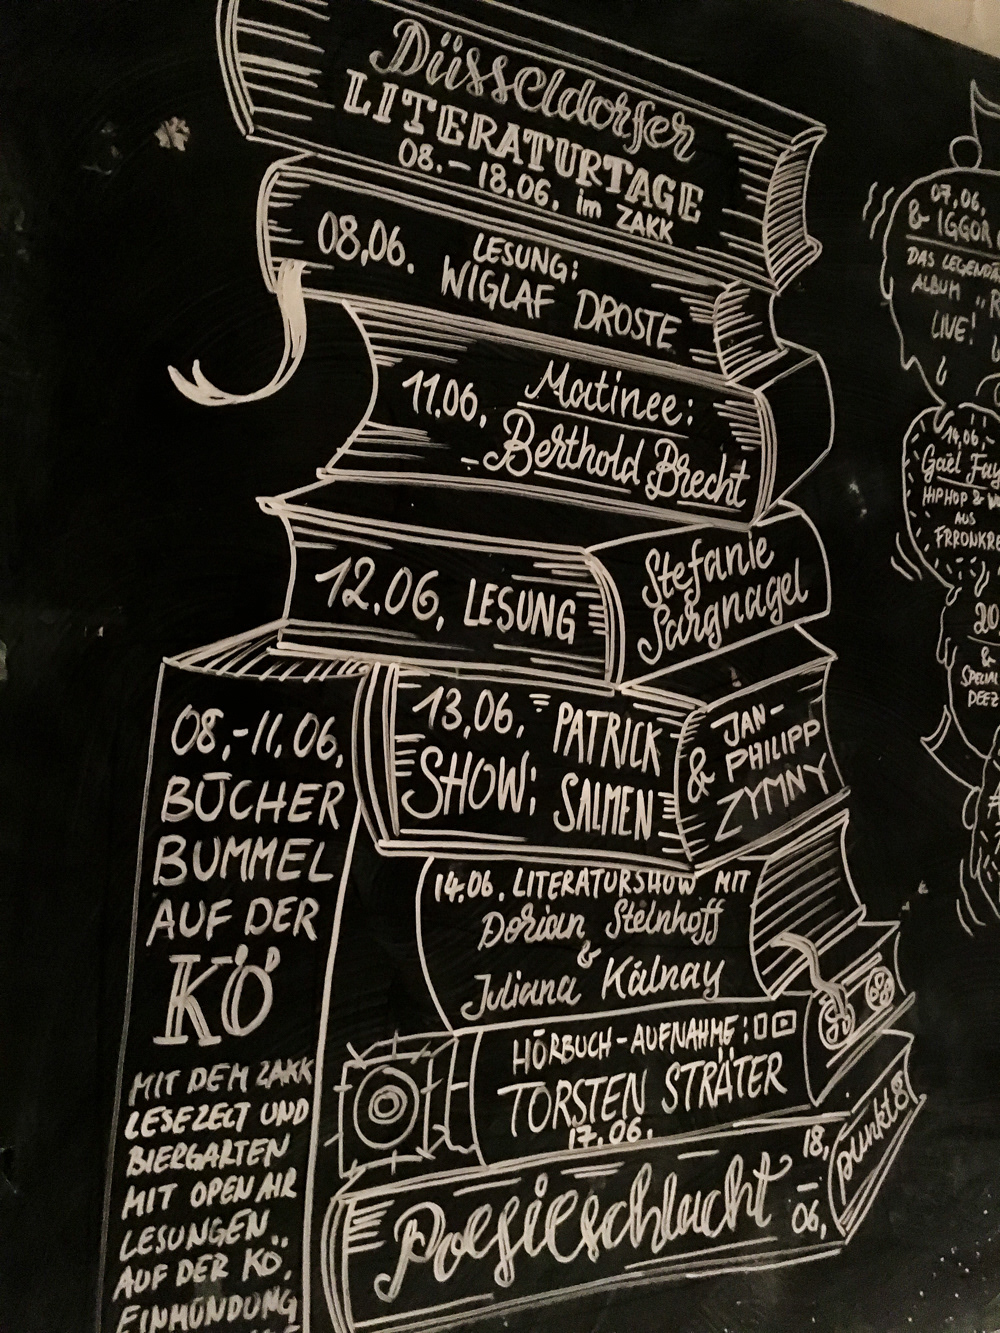 Düsseldorfer
LITERATURTAGE
08.-18.06. im ZAKK
08.06. LESUNG:
WIGLAF DROSTE
11.06. Matinee:
Berthold Brecht
12.06. LESUNG
Stefanie
Sargnagel
13.06. PATRICK
SHOW: SALMEN
& JAN-
PHILIPP
ZYMNY
14.06. LITERATURSHOW MIT
Dorian Steinhoff
&
Juliana Kálnay
HÖRBUCH-AUFNAHME:
TORSTEN STRÄTER
17.06.
Poesieschlacht
18.
06.
punktacht
08.-11.06.
BÜCHER
BUMMEL
AUF DER
KÖ
MIT DEM ZAKK
LESEZELT UND
BIERGARTEN
MIT OPEN AIR
LESUNGEN
AUF DER KÖ,
EINMÜNDUNG
07.06.
& IGGOR
DAS LEGENDÄ
ALBUM „R
LIVE!
14.06.
Gaël Fay
HIPHOP & W
AUS
FRRONKRE
20
&
SPECIAL
DEEZ